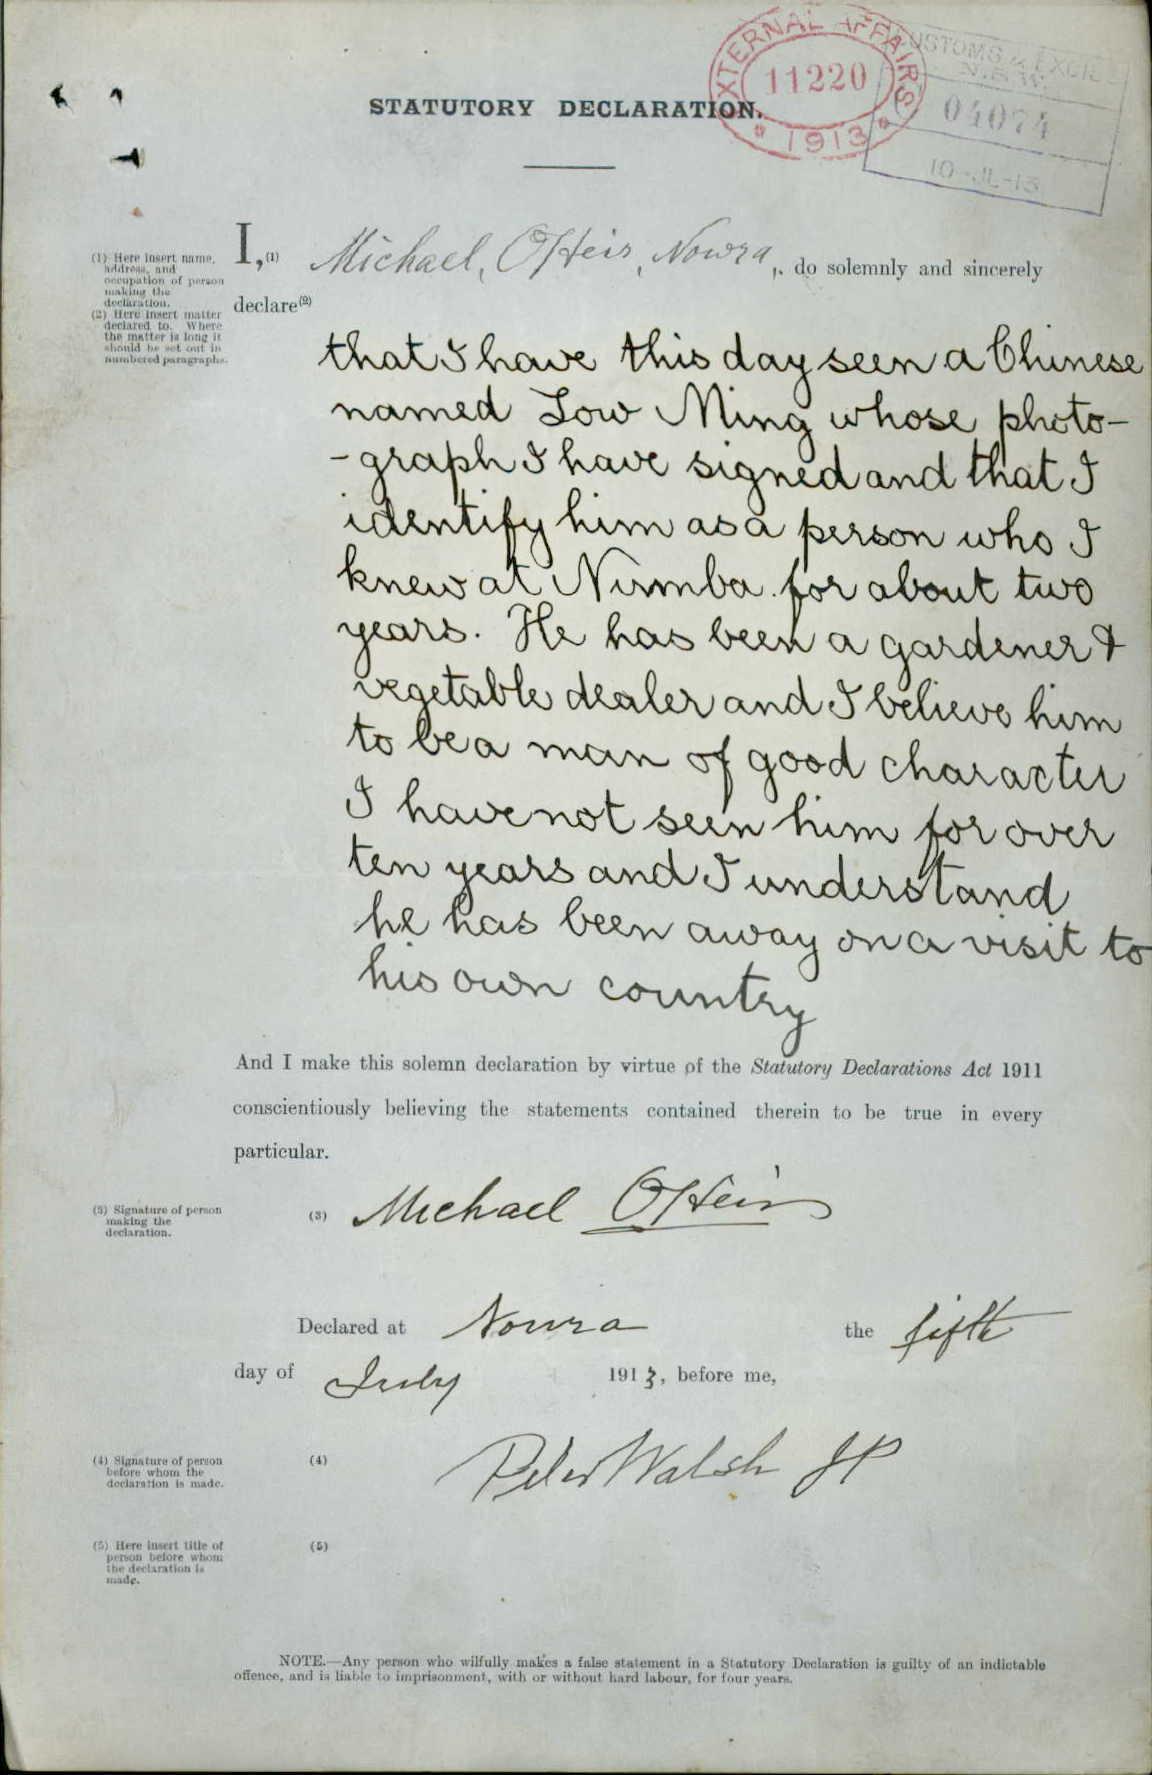 EXTERNAL AFFAIRS
11220
* 1913 *
CUSTOMS & EXCISE
N.S.W.
04074
10-JL-13
STATUTORY DECLARATION.
(1) Here insert name,
address, and
occupation of person
making the
declaration.
(2) Here insert matter
declared to. Where
the matter is long it
should be set out in
numbered paragraphs.
I,(1) Michael, O'Heir, Nowra, do solemnly and sincerely
declare(2)
that I have this day seen a Chinese
named Low Ming whose photo-
-graph I have signed and that I
identify him as a person who I
knew at Numba for about two
years. He has been a gardener &
vegetable dealer and I believe him
to be a man of good character
I have not seen him for over
ten years and I understand
he has been away on a visit to
his own country
And I make this solemn declaration by virtue of the Statutory Declarations Act 1911
conscientiously believing the statements contained therein to be true in every
particular.
(3) Signature of person
making the
declaration.
(3) Michael O'Heir
Declared at Nowra the fifth
day of July 1913, before me,
(4) Signature of person
before whom the
declaration is made.
(4) Peter Walsh JP
(5) Here insert title of
person before whom
the declaration is
made.
(5)
NOTE.—Any person who wilfully makes a false statement in a Statutory Declaration is guilty of an indictable
offence, and is liable to imprisonment, with or without hard labour, for four years.